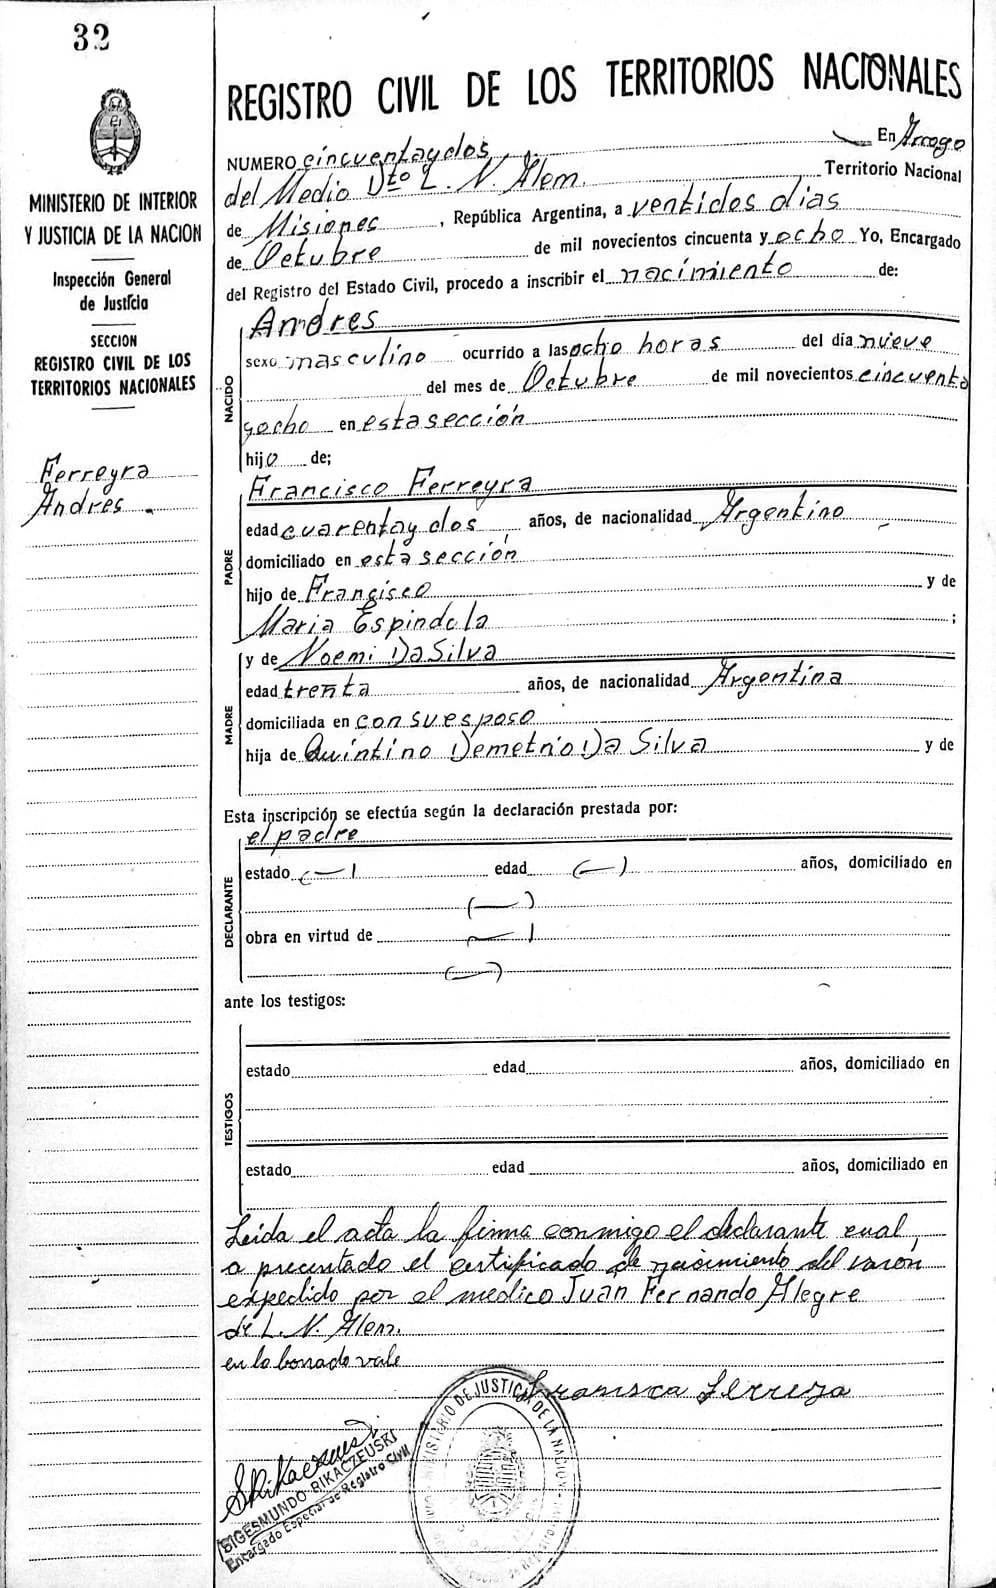 32
REGISTRO CIVIL DE LOS TERRITORIOS NACIONALES
MINISTERIO DE INTERIOR
Y JUSTICIA DE LA NACION
Inspección General
de Justicia
SECCION
REGISTRO CIVIL DE LOS
TERRITORIOS NACIONALES
Ferreyra
Andres
NUMERO cincuentaydos En Arroyo
del Medio Dto L. N. Alem. Territorio Nacional
de Misiones, República Argentina, a ventidos dias
de Octubre de mil novecientos cincuenta y ocho Yo, Encargado
del Registro del Estado Civil, procedo a inscribir el nacimiento de:
NACIDO
Andres
sexo masculino ocurrido a las ocho horas del día nueve
del mes de Octubre de mil novecientos cincuenta
yocho en esta sección
hijo de;
PADRE
Francisco Ferreyra
edad cuarentay dos años, de nacionalidad Argentino
domiciliado en esta sección
hijo de Francisco y de
Maria Espindola ;
MADRE
y de Noemi Da Silva
edad trenta años, de nacionalidad Argentina
domiciliada en con su esposo
hija de Quintino Demetrio Da Silva y de
Esta inscripción se efectúa según la declaración prestada por:
DECLARANTE
el padre
estado (—) edad (—) años, domiciliado en
(—)
obra en virtud de (—)
(—)
ante los testigos:
TESTIGOS
estado edad años, domiciliado en
estado edad años, domiciliado en
Leida el acta la firma conmigo el declarante cual,
a precentado el certificado de nacimiento del varon
expedido por el medico Juan Fernando Alegre
de L. N. Alem.
en lo borrado vale
MINISTERIO DE JUSTICIA DE LA NACION
SIGESMUNDO RIKACZEUSKI
Encargado Especial de Registro Civil